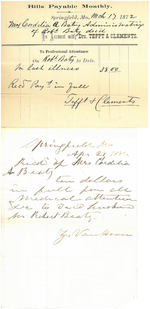 Bills Payable Monthly.
Springfield, Mo. Mch 13 1872
Mrs Cordelia A Batey Administratrix
of Robt Batey decd
To DRS. TEFFT & CLEMENTS.
To Professional Attendance
On Robt Batey to Date.
In last illness
Recd Payt in full
Tefft & Clements
Springfield Mo
Apr 23
Recd of Mrs Cordelia
A Beaty
ten dollars
in full for all
Medical attention
due to
Mr Robert Beaty
Van Hoorn